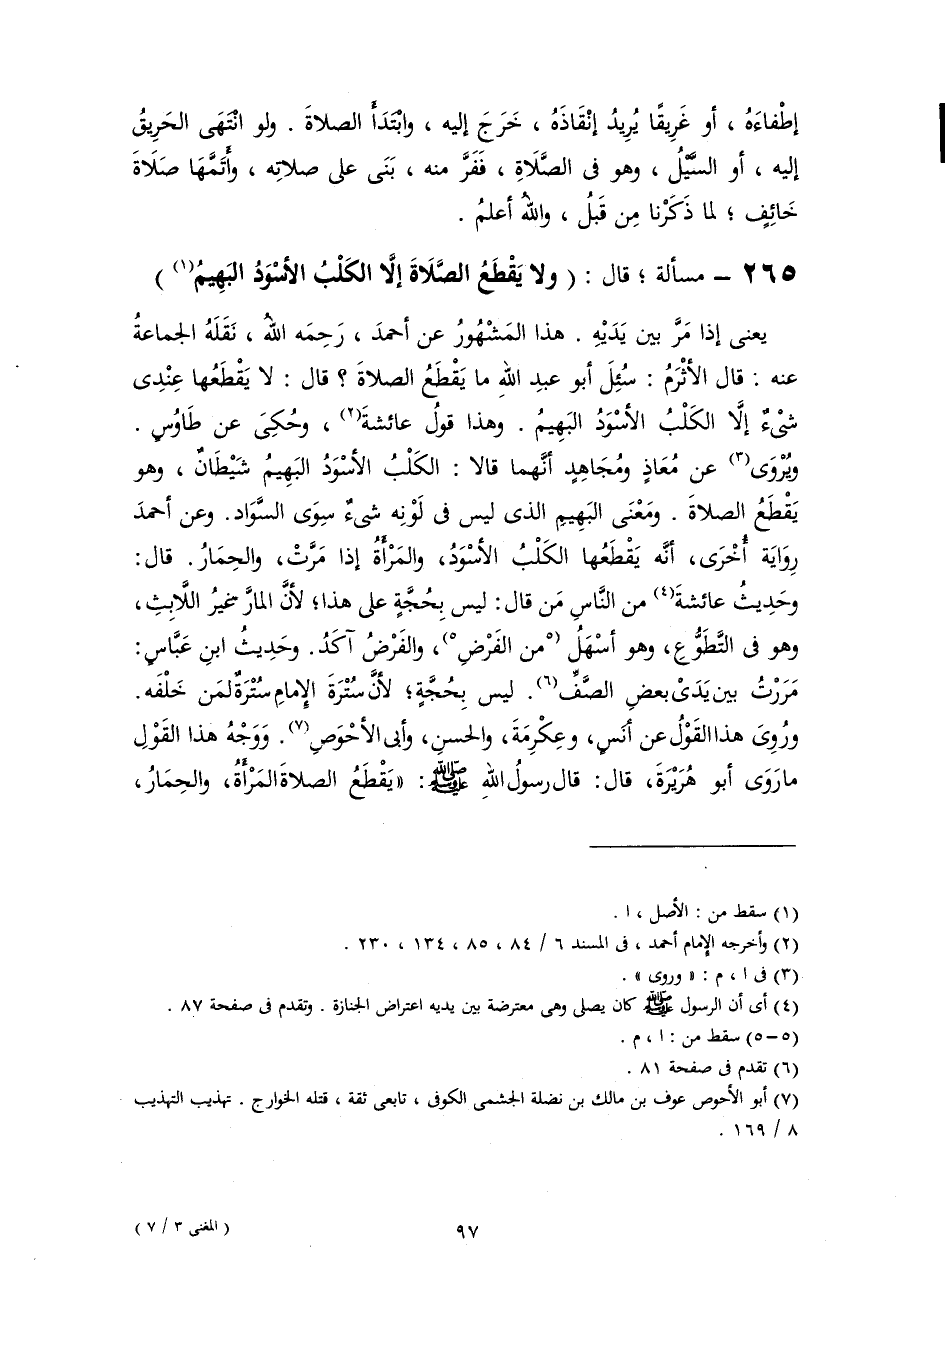 إطْفاءَهُ ، أو غَرِيقًا يُرِيدُ إنْقَاذَهُ ، خَرَجَ إليه ، وابْتَدَأَ الصلاةَ . ولو انْتَهَى الحَرِيقُ
إليه ، أو السَّيْلُ ، وهو فى الصَّلَاةِ ، فَفَرَّ منه ، بَنَى على صلاتِه ، وأَتَمَّهَا صَلَاةَ
خَائِفٍ ؛ لما ذَكَرْنا مِن قَبلُ ، واللهُ أعلمُ .
٢٦٥ – مسألة ؛ قال : ( ولا يَقْطَعُ الصَّلَاةَ إلَّا الكَلْبُ الأسْوَدُ البَهِيمُ(١) )
يعنى إذا مَرَّ بين يَدَيْهِ . هذا المَشْهُورُ عن أحمدَ ، رَحِمَه اللهُ ، نَقَلَهُ الجماعةُ
عنه : قال الأثْرَمُ : سُئِلَ أبو عبدِ اللهِ ما يَقْطَعُ الصلاةَ ؟ قال : لا يَقْطَعُها عِنْدِى
شىْءٌ إلَّا الكَلْبُ الأسْوَدُ البَهِيمُ . وهذا قولُ عائشةَ(٢) ، وحُكِىَ عن طَاوُس .
ويُرْوَى(٣) عن مُعَاذٍ ومُجَاهِدٍ أنَّهما قالا : الكَلْبُ الأسْوَدُ البَهِيمُ شَيْطَانٌ ، وهو
يَقْطَعُ الصلاةَ . ومَعْنَى البَهِيمِ الذى ليس فى لَوْنِه شىءٌ سِوَى السَّوَاد. وعن أحمدَ
رِوَايَة أُخْرَى، أنَّه يَقْطَعُها الكَلْبُ الأسْوَدُ، والمَرْأَةُ إذا مَرَّتْ، والحِمَارُ. قال:
وحَدِيثُ عائشةَ(٤) من النَّاسِ مَن قال: ليس بِحُجَّةٍ على هذا؛ لأنَّ المارَّ غيرُ اللَّابِثِ،
وهو فى التَّطَوُّعِ، وهو أسْهَلُ (٥من الفَرْضِ٥)، والفَرْضُ آكَدُ. وحَدِيثُ ابنِ عَبَّاسٍ:
مَرَرْتُ بين يَدَىْ بعضِ الصَّفِّ(٦). ليس بِحُجَّةٍ؛ لأنَّ سُتْرَةَ الإِمامِ سُتْرَةٌ لمَن خَلْفَه.
ورُوِىَ هذا القَوْلُ عن أنَس، وعِكْرِمَةَ، والحسنِ، وأبى الأحْوَصِ(٧). وَوَجْهُ هذا القَوْلِ
ما رَوَى أبو هُرَيْرَةَ، قال: قال رسولُ اللهِ ﷺ: «يَقْطَعُ الصلاةَ المَرْأَةُ، والحِمَارُ،
(١) سقط من : الأصل ، ا .
(٢) وأخرجه الإمام أحمد ، فى المسند ٦ / ٨٤ ، ٨٥ ، ١٣٤ ، ٢٣٠ .
(٣) فى ا ، م : « وروى » .
(٤) أى أن الرسول ﷺ كان يصلى وهى معترضة بين يديه اعتراض الجنازة . وتقدم فى صفحة ٨٧ .
(٥–٥) سقط من : ا ، م .
(٦) تقدم فى صفحة ٨١ .
(٧) أبو الأحوص عوف بن مالك بن نضلة الجشمى الكوفى ، تابعى ثقة ، قتله الخوارج . تهذيب التهذيب
٨ / ١٦٩ .
٩٧
( المغنى ٣ / ٧ )